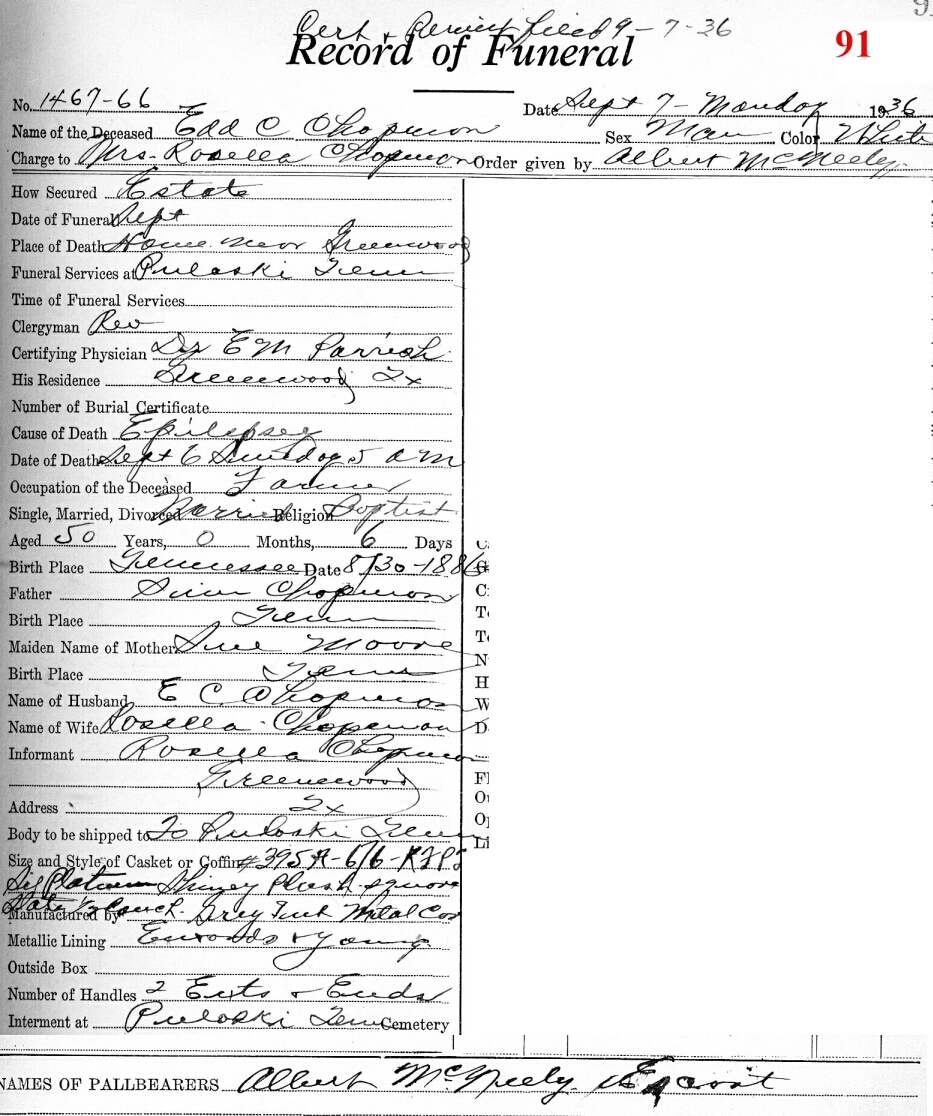 9
Cert & Permit filed 9-7-36
Record of Funeral
91
No. 1467-66 Date Sept 7 - Monday 1936
Name of the Deceased Edd C Chapmon Sex Man Color White
Charge to Mrs. Rosella Chapmon Order given by Albert McNeely.
How Secured Estate
Date of Funeral Sept
Place of Death Home near Greenwood
Funeral Services at Pulaski Tenn
Time of Funeral Services
Clergyman Rev
Certifying Physician Dr E M Parrish
His Residence Greenwood Tx
Number of Burial Certificate
Cause of Death Epilepsey
Date of Death Sept 6 Sunday 5 am
Occupation of the Deceased Farmer
Single, Married, Divorced Married Religion Baptist
Aged 50 Years, 0 Months, 6 Days
Birth Place Tennessee Date 8/30-1886
Father Chapmon
Birth Place Tenn
Maiden Name of Mother Sue Moore
Birth Place Tenn
Name of Husband E C Chapmon
Name of Wife Rosella Chapmon
Informant Rosella Chapmon
Greenwood
Address Tx
Body to be shipped to To Pulaski Tenn
Size and Style of Casket or Coffin #395A-6/6-
Platinum Plush square
Manufactured by Grey Metal
Metallic Lining & Young
Outside Box
Number of Handles 2 Exts & Ends
Interment at Pulaski Tenn Cemetery
NAMES OF PALLBEARERS Albert McNeely.